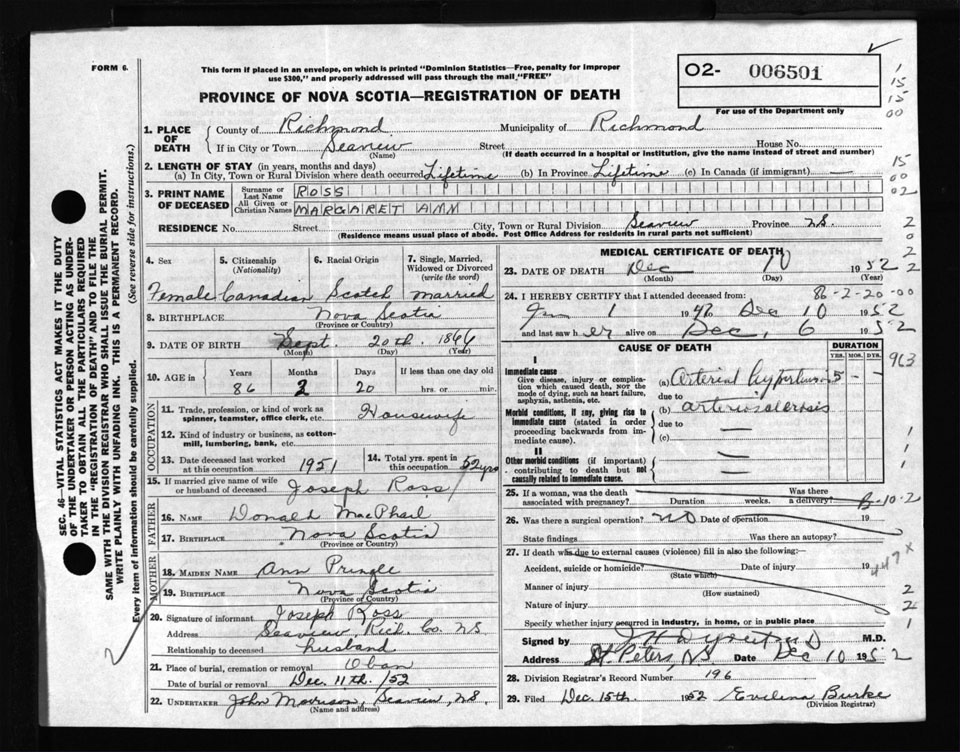 FORM 6.
This form if placed in an envelope, on which is printed "Dominion Statistics—Free, penalty for improper
use $300," and properly addressed will pass through the mail "FREE"
PROVINCE OF NOVA SCOTIA—REGISTRATION OF DEATH
O2- 006501
For use of the Department only
1
15
15
00
15
00
02
2
0
2
2
SEC. 46—VITAL STATISTICS ACT MAKES IT THE DUTY
OF THE UNDERTAKER OR PERSON ACTING AS UNDER-
TAKER TO OBTAIN ALL THE PARTICULARS REQUIRED
IN THE "REGISTRATION OF DEATH" AND TO FILE THE
SAME WITH THE DIVISION REGISTRAR WHO SHALL ISSUE THE BURIAL PERMIT.
WRITE PLAINLY WITH UNFADING INK. THIS IS A PERMANENT RECORD.
Every item of information should be carefully supplied. (See reverse side for instructions.)
1. PLACE OF DEATH
County of Richmond Municipality of Richmond
If in City or Town Seaview Street House No.
(Name) (If death occurred in a hospital or institution, give the name instead of street and number)
2. LENGTH OF STAY (in years, months and days)
(a) In City, Town or Rural Division where death occurred Lifetime (b) In Province Lifetime (c) In Canada (if immigrant) —
3. PRINT NAME OF DECEASED
Surname or Last Name ROSS
All Given or Christian Names MARGARET ANN
RESIDENCE No. Street City, Town or Rural Division Seaview Province N.S.
(Residence means usual place of abode. Post Office Address for residents in rural parts not sufficient)
4. Sex 5. Citizenship (Nationality) 6. Racial Origin 7. Single, Married, Widowed or Divorced (write the word)
Female Canadian Scotch Married
8. BIRTHPLACE Nova Scotia
(Province or Country)
9. DATE OF BIRTH Sept. 20th. 1866
(Month) (Day) (Year)
10. AGE in Years Months Days If less than one day old
86 2 20 hrs. or min.
OCCUPATION
11. Trade, profession, or kind of work as spinner, teamster, office clerk, etc. Housewife
12. Kind of industry or business, as cotton-mill, lumbering, bank, etc.
13. Date deceased last worked at this occupation 1951
14. Total yrs. spent in this occupation 52 yrs
15. If married give name of wife or husband of deceased Joseph Ross
FATHER
16. NAME Donald MacPhail
17. BIRTHPLACE Nova Scotia
(Province or Country)
MOTHER
18. MAIDEN NAME Ann Pringle
19. BIRTHPLACE Nova Scotia
(Province or Country)
20. Signature of informant Joseph Ross
Address Seaview Rich. Co. N.S
Relationship to deceased husband
21. Place of burial, cremation or removal Oban
Date of burial or removal Dec. 11th. /52
22. UNDERTAKER John Morrison, Seaview, N.S.
(Name and address)
MEDICAL CERTIFICATE OF DEATH
23. DATE OF DEATH Dec 10 1952
(Month) (Day) (Year)
24. I HEREBY CERTIFY that I attended deceased from: 86-2-20-00
Jan 1 1948 Dec 10 1952
and last saw her alive on Dec, 6 1952
CAUSE OF DEATH DURATION
YRS. MOS. DYS.
963
I
Immediate cause
Give disease, injury or complication which caused death, NOT the mode of dying, such as heart failure, asphyxia, asthenia, etc.
(a) Arterial hypertension 5 – –
due to
Morbid conditions, if any, giving rise to immediate cause (stated in order proceeding backwards from immediate cause).
(b) arteriosclerosis
due to —
(c) —
II
Other morbid conditions (if important) contributing to death but not causally related to immediate cause.
1
1
1
25. If a woman, was the death associated with pregnancy? Duration weeks. Was there a delivery?
B-10-2
26. Was there a surgical operation? NO Date of operation 19
State findings Was there an autopsy?
27. If death was due to external causes (violence) fill in also the following:—
Accident, suicide or homicide? Date of injury 19
(State which)
447 x
Manner of injury
(How sustained)
2
Nature of injury
2
Specify whether injury occurred in industry, in home, or in public place
1
Signed by M.D.
Address St. Peters, N.S Date Dec 10 1952
28. Division Registrar's Record Number 196
29. Filed Dec. 15th. 1952 Evelina Burke
(Division Registrar)
2